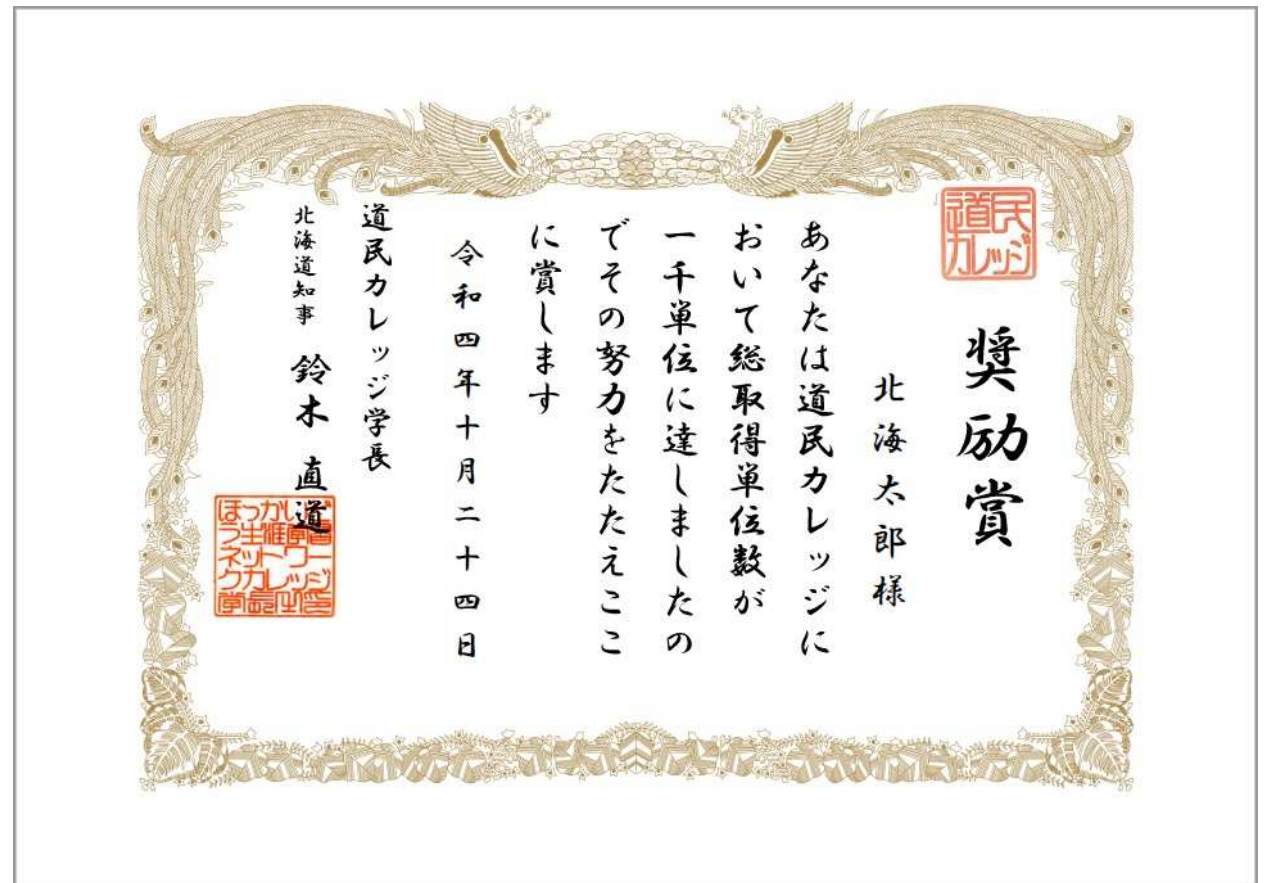 道民
カレッジ
奨励賞
北海太郎様
あなたは道民カレッジに
おいて総取得単位数が
一千単位に達しましたの
でその努力をたたえここ
に賞します
令和四年十月二十四日
道民カレッジ学長
北海道知事 鈴木 直道
ほっかいど
う生涯学習
ネットワー
クカレッジ
学長之印